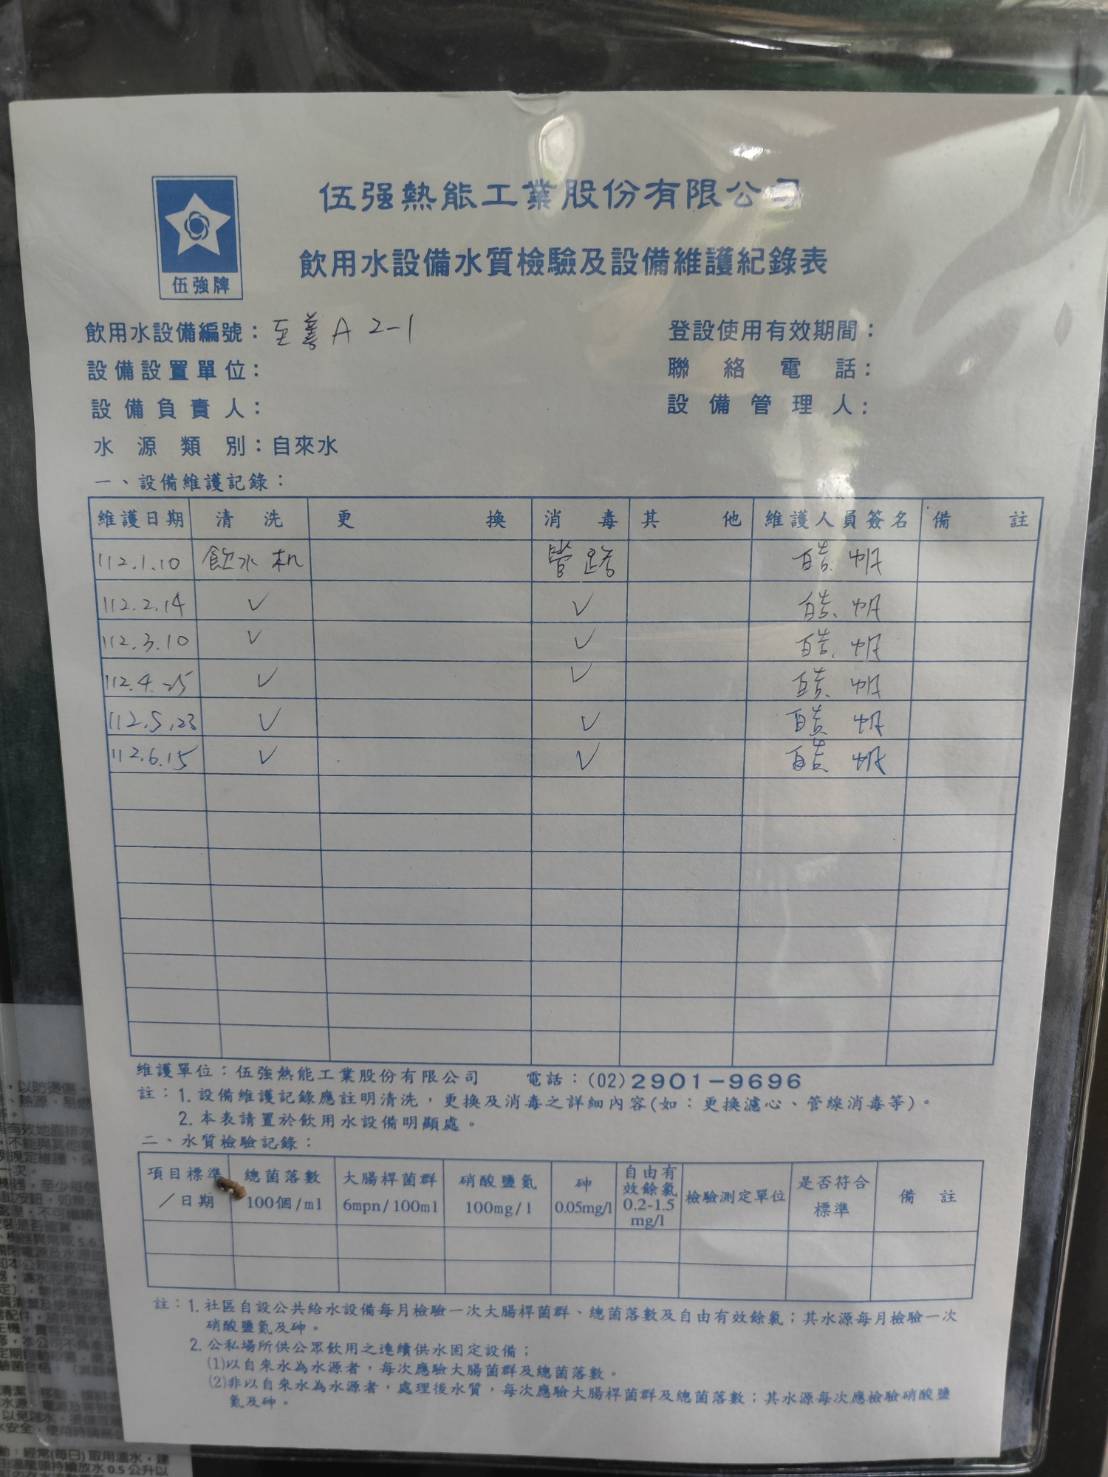 伍强熱能工業股份有限公司
飲用水設備水質檢驗及設備維護紀錄表
伍強牌
飲用水設備編號：至善A 2-1
登設使用有效期間：
設備設置單位：
聯絡電話：
設備負責人：
設備管理人：
水源類別：自來水
一、設備維護記錄：
維護日期 清洗 更換 消毒 其他 維護人員簽名 備註
112.1.10 飲水机 管路
112.2.14 ✓ ✓
112.3.10 ✓ ✓
112.4.25 ✓ ✓
112.5.23 ✓ ✓
112.6.15 ✓ ✓
維護單位：伍強熱能工業股份有限公司 電話：(02)2901-9696
註：1.設備維護記錄應註明清洗，更換及消毒之詳細內容(如：更換濾心、管線消毒等)。
2.本表請置於飲用水設備明顯處。
二、水質檢驗記錄：
項目標準／日期 總菌落數100個/ml 大腸桿菌群6mpn/100ml 硝酸鹽氮100mg/l 砷0.05mg/l 自由有效餘氯0.2-1.5mg/l 檢驗測定單位 是否符合標準 備註
註：1.社區自設公共給水設備每月檢驗一次大腸桿菌群、總菌落數及自由有效餘氯；其水源每月檢驗一次
硝酸鹽氮及砷。
2.公私場所供公眾飲用之連續供水固定設備；
(1)以自來水為水源者，每次應驗大腸菌群及總菌落數。
(2)非以自來水為水源者，處理後水質，每次應驗大腸桿菌群及總菌落數；其水源每次應檢驗硝酸鹽
氮及砷。